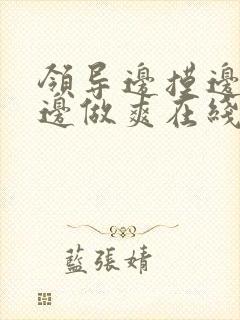 領导邊摸邊
邊做爽在綫
藍張婧